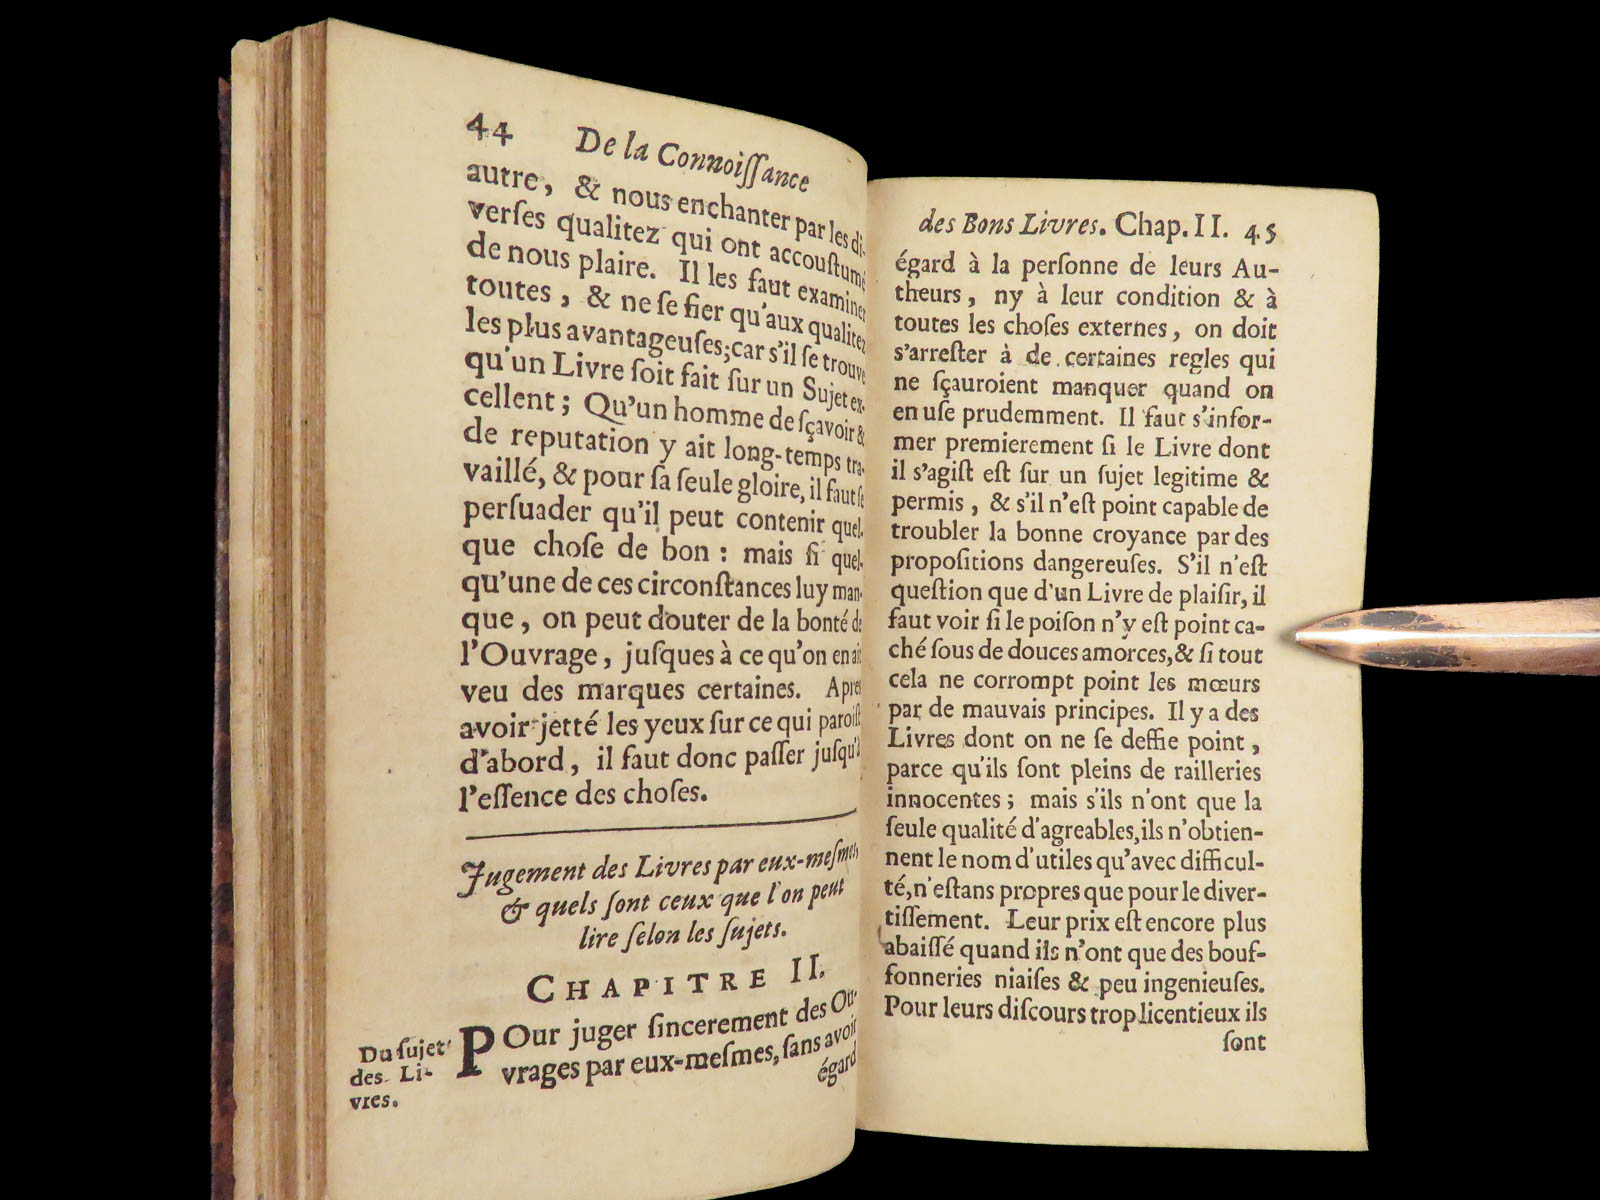 44 De la Connoiſſance
autre, & nous enchanter par les di-
verſes qualitez qui ont accouſtumé
de nous plaire. Il les faut examiner
toutes, & ne ſe fier qu'aux qualitez
les plus avantageuſes; car s'il ſe trouve
qu'un Livre ſoit fait ſur un Sujet ex-
cellent; Qu'un homme de ſçavoir &
de reputation y ait long-temps tra-
vaillé, & pour ſa ſeule gloire, il faut ſe
perſuader qu'il peut contenir quel-
que choſe de bon : mais ſi quel-
qu'une de ces circonſtances luy man-
que, on peut douter de la bonté de
l'Ouvrage, juſques à ce qu'on en ait
veu des marques certaines. Apres
avoir jetté les yeux ſur ce qui paroiſt
d'abord, il faut donc paſſer juſqu'à
l'eſſence des choſes.
Jugement des Livres par eux-meſmes,
& quels ſont ceux que l'on peut
lire ſelon les ſujets.
CHAPITRE II.
Du ſujet
des Li-
vres.
POur juger ſincerement des Ou-
vrages par eux-meſmes, ſans avoir
égard
des Bons Livres. Chap. II. 45
égard à la perſonne de leurs Au-
theurs, ny à leur condition & à
toutes les choſes externes, on doit
s'arreſter à de certaines regles qui
ne ſçauroient manquer quand on
en uſe prudemment. Il faut s'infor-
mer premierement ſi le Livre dont
il s'agiſt eſt ſur un ſujet legitime &
permis, & s'il n'eſt point capable de
troubler la bonne croyance par des
propoſitions dangereuſes. S'il n'eſt
queſtion que d'un Livre de plaiſir, il
faut voir ſi le poiſon n'y eſt point ca-
ché ſous de douces amorces, & ſi tout
cela ne corrompt point les mœurs
par de mauvais principes. Il y a des
Livres dont on ne ſe deffie point,
parce qu'ils ſont pleins de railleries
innocentes; mais s'ils n'ont que la
ſeule qualité d'agreables, ils n'obtien-
nent le nom d'utiles qu'avec difficul-
té, n'eſtans propres que pour le diver-
tiſſement. Leur prix eſt encore plus
abaiſſé quand ils n'ont que des bouf-
fonneries niaiſes & peu ingenieuſes.
Pour leurs diſcours trop licentieux ils
ſont